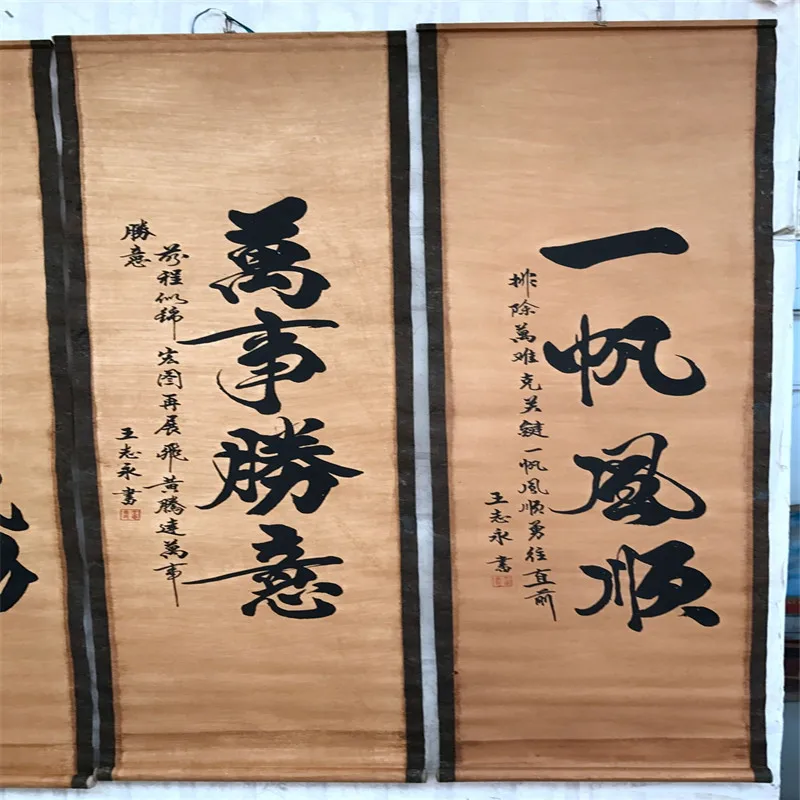 一帆風順
排除萬难克关鍵一帆風順勇往直前
王志永書
萬事勝意
前程似锦宏图再展飛黄騰達萬事
勝意
王志永書